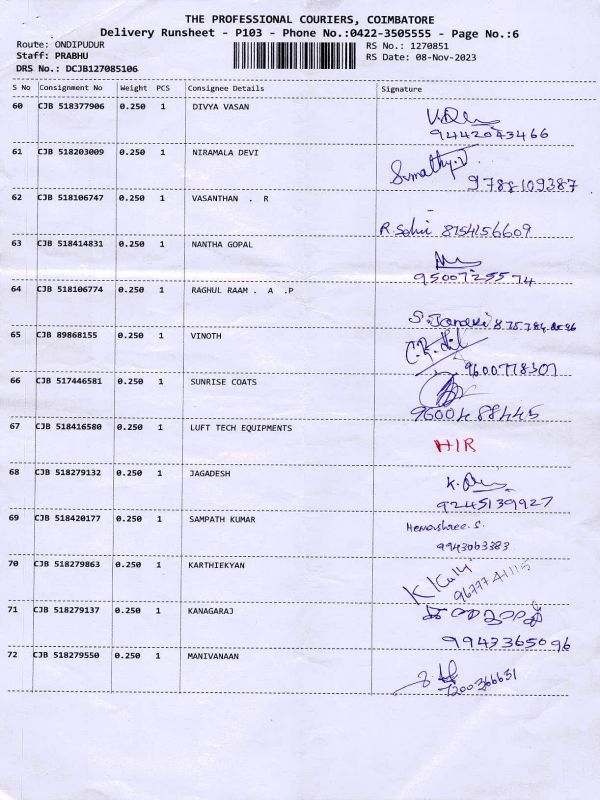 THE PROFESSIONAL COURIERS, COIMBATORE
Delivery Runsheet - P103 - Phone No.:0422-3505555 - Page No.:6
Route: ONDIPUDUR RS No.: 1270851
Staff: PRABHU RS Date: 08-Nov-2023
DRS No.: DCJB127085106
S No Consignment No Weight PCS Consignee Details Signature
60 CJB 518377906 0.250 1 DIVYA VASAN
9442043466
61 CJB 518203009 0.250 1 NIRAMALA DEVI
9788109387
62 CJB 518106747 0.250 1 VASANTHAN . R
R. 8754156609
63 CJB 518414831 0.250 1 NANTHA GOPAL
9500725574
64 CJB 518106774 0.250 1 RAGHUL RAAM . A .P
S.
65 CJB 89868155 0.250 1 VINOTH
9600778307
66 CJB 517446581 0.250 1 SUNRISE COATS
9600488445
67 CJB 518416580 0.250 1 LUFT TECH EQUIPMENTS
HIR
68 CJB 518279132 0.250 1 JAGADESH
K.
9245139927
69 CJB 518420177 0.250 1 SAMPATH KUMAR
9943063383
70 CJB 518279863 0.250 1 KARTHIEKYAN
71 CJB 518279137 0.250 1 KANAGARAJ
9943365096
72 CJB 518279550 0.250 1 MANIVANAAN
7200366631